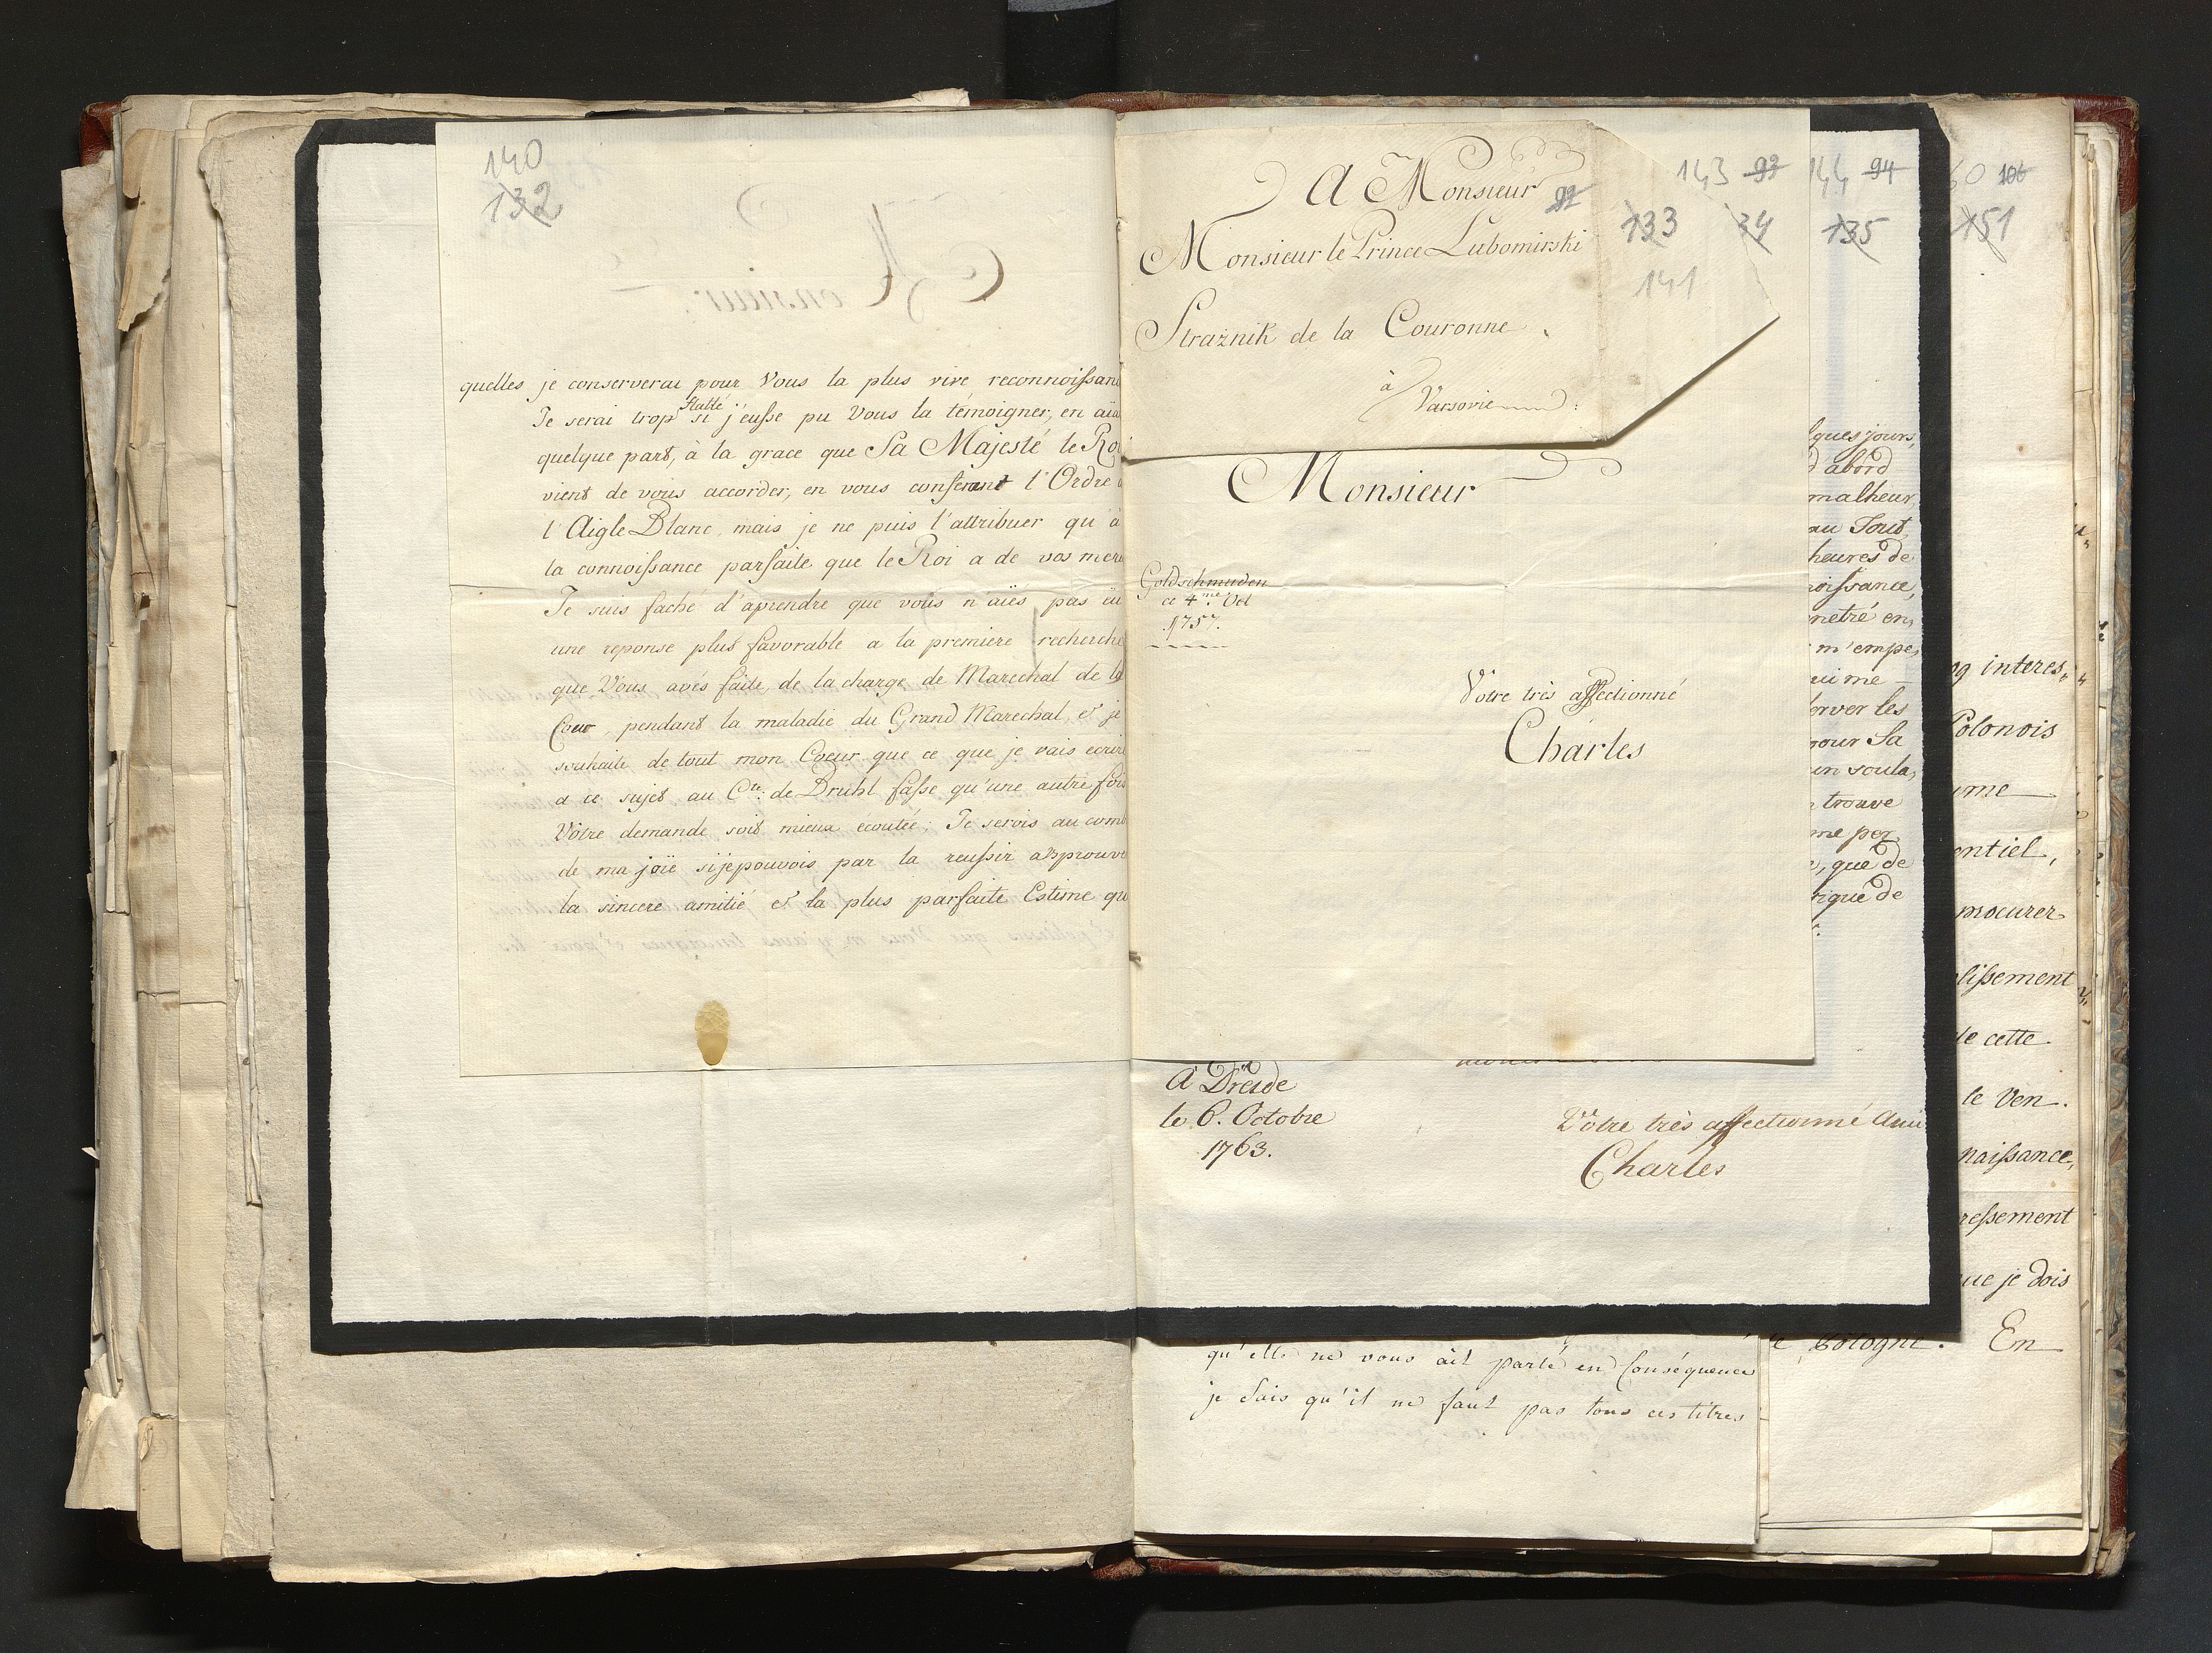 140
132
quelles je conserverai pour Vous la plus vive reconnoissan
flatté
Je serai trop si j'eusse pu Vous la témoigner, en aïa
quelque part, à la grace que Sa Majesté le Roi
vient de vous accorder, en vous conferant l'Ordre d
l'Aigle Blanc, mais je ne puis l'attribuer qu'à
la connoissance parfaite que le Roi a de vos meri
Je suis faché d'aprendre que vous n'aïés pas eu
une reponse plus favorable a la premiere recherche
que Vous avés faite, de la charge de Marechal de la
Cour, pendant la maladie du Grand Marechal, et je
souhaite de tout mon Coeur que ce que je vais ecrire
a ce sujet au Cte. de Bruhl fasse qu'une autre fois
Vôtre demande soit mieux ecoutée; Je serois au comb
de ma joïe si je pouvois par la reussir a
la sincere amitié et la plus parfaite Estime qu
A Monsieur
Monsieur le Prince Lubomirski
Strażnik de la Couronne
à
Varsovie
92
143 93 144 94
133 34 135
141
50 106
151
Monsieur
Goldschmieden
ce 4me Oct
1757.
Vôtre très affectionné
Charles
A Dresde
le 6. Octobre
1763.
Vôtre très affectionné Ami
Charles
lques jours,
d'abord
malheur
au Tout
heures de
noissance,
netré en
m'empe
ui me
erver les
pour Sa
un soula
trouve
me per
, que de
rigué de
interes
Polonois
ume
entiel,
procurer
lissement
de cette
le Ven.
naissance,
ressement
ue je dois
e Cologne. En
qu'elle ne vous ait parlé en conséquence
je sais qu'il ne faut pas tous ces titres